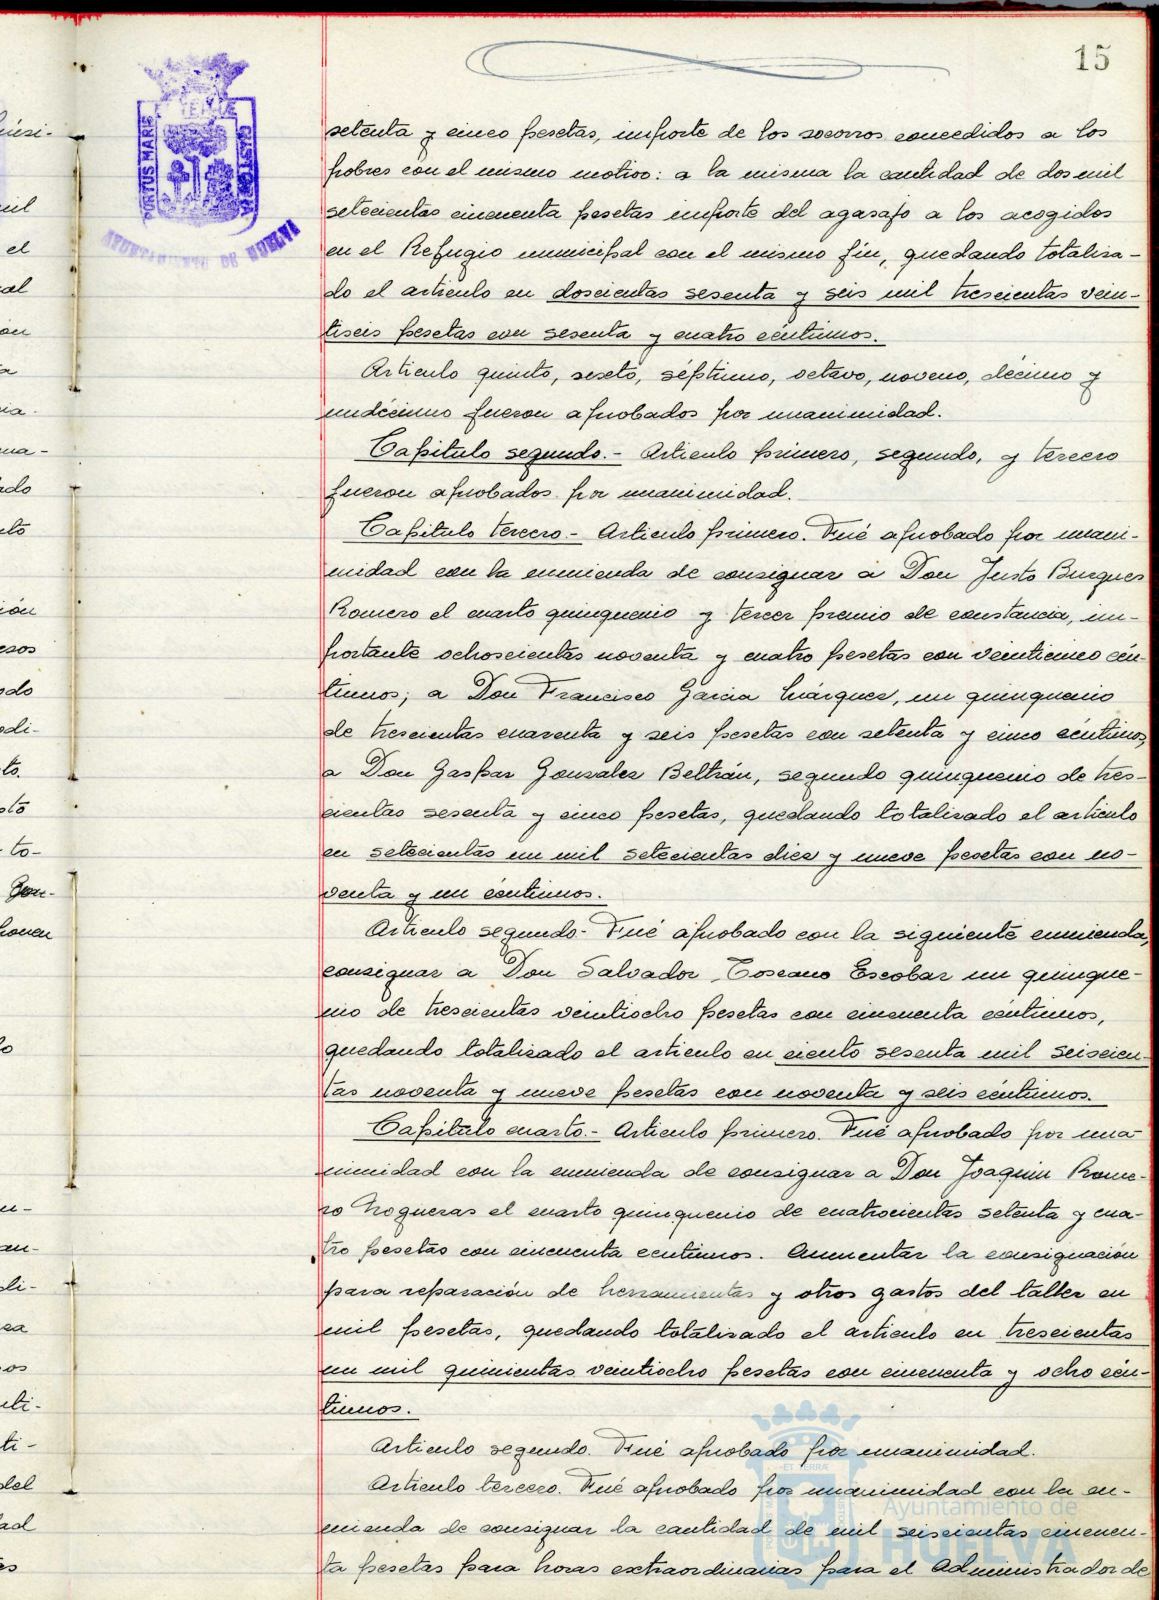 15
PORTUS MARIS
ET TERRÆ
CUSTODIA
AYUNTAMIENTO DE HUELVA
setenta y cinco pesetas, importe de los socorros concedidos a los
pobres con el mismo motivo: a la misma la cantidad de dos mil
setecientas cincuenta pesetas importe del agasajo a los acogidos
en el Refugio municipal con el mismo fín, quedando totaliza-
do el articulo en doscientas sesenta y seis mil trescientas vein-
tiseis pesetas con sesenta y cuatro céntimos.
Articulo quinto, sexto, séptimo, octavo, noveno, décimo y
undécimo fueron aprobados por unanimidad.
Capitulo segundo.- Articulo primero, segundo, y tercero
fueron aprobados por unanimidad.
Capitulo tercero.- Articulo primero. Fué aprobado por unani-
midad con la enmienda de consignar a Don Justo Burgues
Romero el cuarto quinquenio y tercer premio de constancia, im-
portante ochoscientas noventa y cuatro pesetas con veinticinco cén-
timos; a Don Francisco Garcia Márquez, un quinquenio
de trescientas cuarenta y seis pesetas con setenta y cinco céntimos,
a Don Gaspar Gonzalez Beltrán, segundo quinquenio de tres-
cientas sesenta y cinco pesetas, quedando totalizado el articulo
en setecientas un mil setecientas diez y nueve pesetas con no-
venta y un céntimos.
Articulo segundo.- Fué aprobado con la siguiente enmienda,
consignar a Don Salvador Toscano Escobar un quinque-
nio de trescientas veintiocho pesetas con cincuenta céntimos,
quedando totalizado el articulo en ciento sesenta mil seiscien-
tas noventa y nueve pesetas con noventa y seis céntimos.
Capitulo cuarto.- Articulo primero. Fué aprobado por una-
nimidad con la enmienda de consignar a Don Joaquin Rome-
ro Nogueras el cuarto quinquenio de cuatrocientas setenta y cua-
tro pesetas con cincuenta centimos. Aumentar la consignación
para reparación de herramientas y otros gastos del taller en
mil pesetas, quedando totalizado el articulo en trescientas
un mil quinientas veintiocho pesetas con cincuenta y ocho cén-
timos.
Articulo segundo. Fué aprobado por unanimidad.
Articulo tercero. Fué aprobado por unanimidad con la en-
mienda de consignar la cantidad de mil seiscientas cincuen-
ta pesetas para horas extraordinarias para el Administrador de
Ayuntamiento de
HUELVA